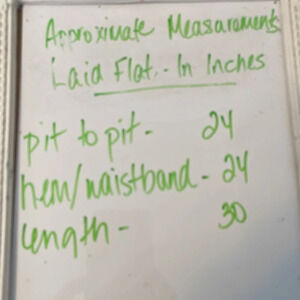 Approximate Measurements
Laid Flat. - In Inches
pit to pit - 24
hem/waistband - 24
length - 30